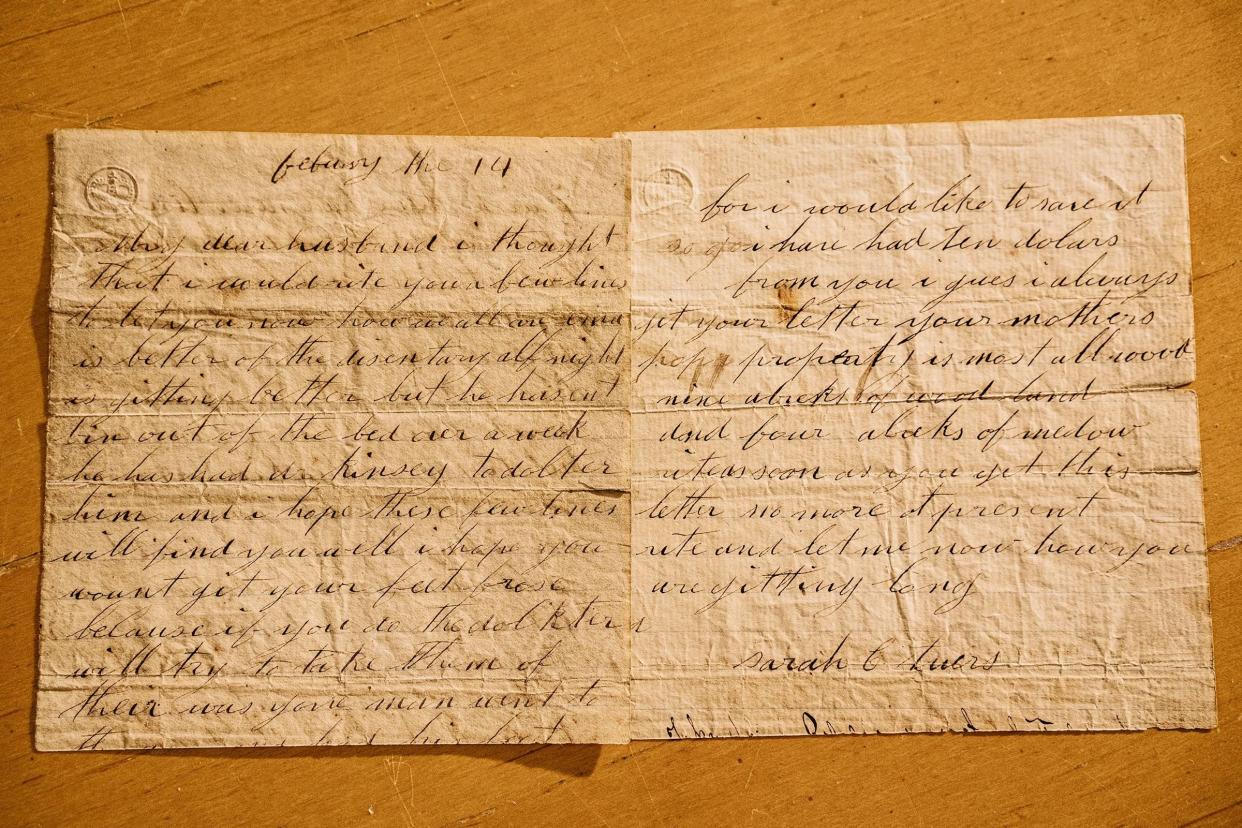 febuary the 14
My dear husband i thought
that i would rite you a few lines
to let you now how we all are
is better of the disentary alf night
is gitting better but he hasent
bin out of the bed over a week
he has had dr kinsey to docter
him and i hope these few lines
will find you well i hope you
wount git your feet frose
because if you do the dockters
will try to take them of
their was yone man went to
had his feet
for i would like to save it
so i have had ten dolars
from you i gues i always
git your letter your mothers
property is most all wood
nine of wood land
and four of medow
rite as soon as you get this
letter no more at present
rite and let me now how you
are gitting long
sarah C